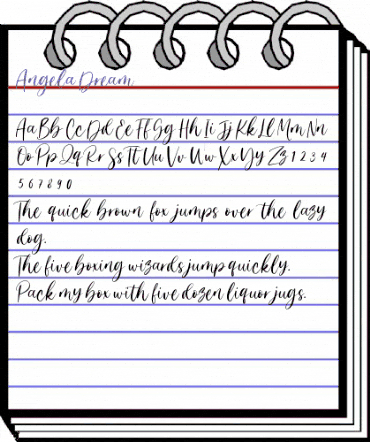 Angela Dream
Aa Bb Cc Dd Ee Ff Gg Hh Ii Jj Kk Ll Mm Nn
Oo Pp Qq Rr Ss Tt Uu Vv Ww Xx Yy Zz 1 2 3 4
5 6 7 8 9 0
The quick brown fox jumps over the lazy
dog.
The five boxing wizards jump quickly.
Pack my box with five dozen liquor jugs.